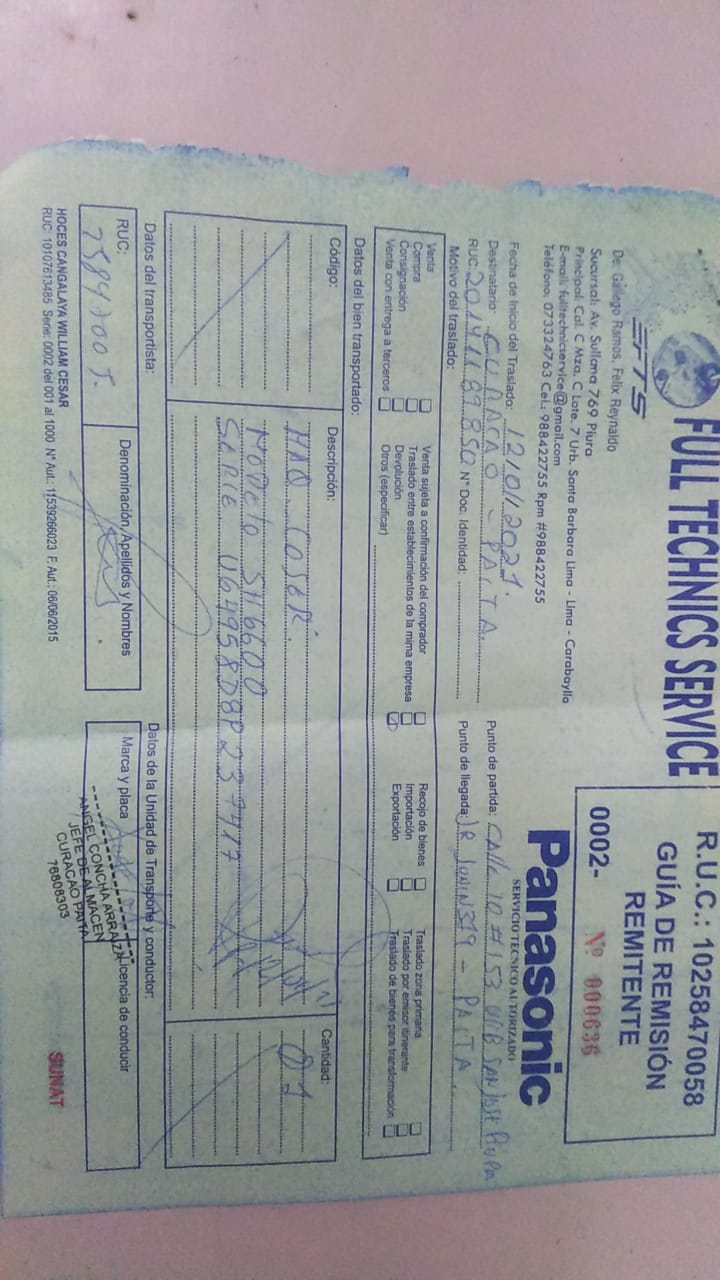 FULL TECHNICS SERVICE
FTS
De: Gallego Ramos, Felix Reynaldo
Sucursal: Av. Sullana 769 Piura
Principal: Cal. C Mza. C Lote. 7 Urb. Santa Barbara Lima - Lima - Carabayllo
E-mail: fulltechnicservice@gmail.com
Teléfono: 073324763 Cel.: 988422755 Rpm #988422755
R.U.C.: 10258470058
GUÍA DE REMISIÓN
REMITENTE
0002- Nº 000636
Panasonic
SERVICIO TECNICO AUTORIZADO
Fecha de Inicio del Traslado: 12/01/2021.
Destinatario: CURACAO - PAITA
RUC: N° Doc. Identidad:
Punto de partida: CALLE 10 # 153 URB SAN JOSE PIURA
Punto de llegada: JR JUNIN 379 - PAITA
Motivo del traslado:
Venta
Compra
Consignación
Venta con entrega a terceros
Venta sujeta a confirmación del comprador
Traslado entre establecimientos de la mima empresa
Devolución
Otros (especificar)
Recojo de bienes
Importación
Exportación
Traslado zona primaria
Traslado por emisor itinerante
Traslado de bienes para transformación
Datos del bien transportado:
Código: Descripción: Cantidad:
MAQ. COSER. 01
MODELO SH6600
SERIE U64958D8P237417
Datos del transportista:
Datos de la Unidad de Transporte y conductor:
RUC: Denominación, Apellidos y Nombres
Marca y placa Licencia de conducir
ANGEL CONCHA ARRAIZA
JEFE DE ALMACEN
CURACAO PAITA
76806303
HOCES CANGALAYA WILLIAM CESAR
RUC: 10107613485 Serie: 0002 del 001 al 1000 N° Aut.: 11539266023 F. Aut.: 06/06/2015
SUNAT